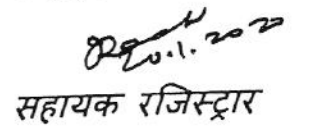 20.1.2020
सहायक रजिस्ट्रार